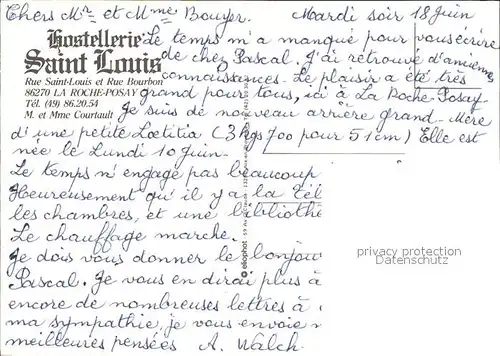 Chers Mr et Mme Bouyer. Mardi soir 18 Juin
Hostellerie
Saint Louis
Rue Saint-Louis et Rue Bourbon
86270 LA ROCHE-POSAY
Tél. (49) 86.20.54
M. et Mme Courtault
Le temps m'a manqué pour vous écrire
de chez Pascal. J'ai retrouvé d'anciennes
connaissances. Le plaisir a été très
grand pour tous, ici à La Roche-Posay
Je suis de nouveau arrière grand-Mère
d'une petite Lætitia (3 kgs 700 pour 51 cm) Elle est
née le Lundi 10 Juin.
Le temps n'engage pas beaucoup
Heureusement qu'il y a la Tél
les chambres, et une biblioth
Le chauffage marche.
Je dois vous donner le bonjou
Pascal. Je vous en dirai plus à
encore de nombreuses lettres à
ma sympathie, je vous envoie
meilleures pensées A. Walch
eliophot
privacy protection
Datenschutz